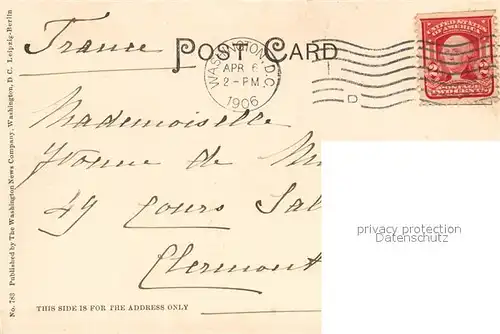 France
POST CARD
WASHINGTON, D.C.
APR 6
2-PM
1906
D
UNITED STATES
OF AMERICA
POSTAGE
TWO CENTS
Mademoiselle
Yvonne de
49 Cours
Clermont
privacy protection
Datenschutz
THIS SIDE IS FOR THE ADDRESS ONLY
No. 783 Published by The Washington News Company, Washington, D C. Leipzig-Berlin